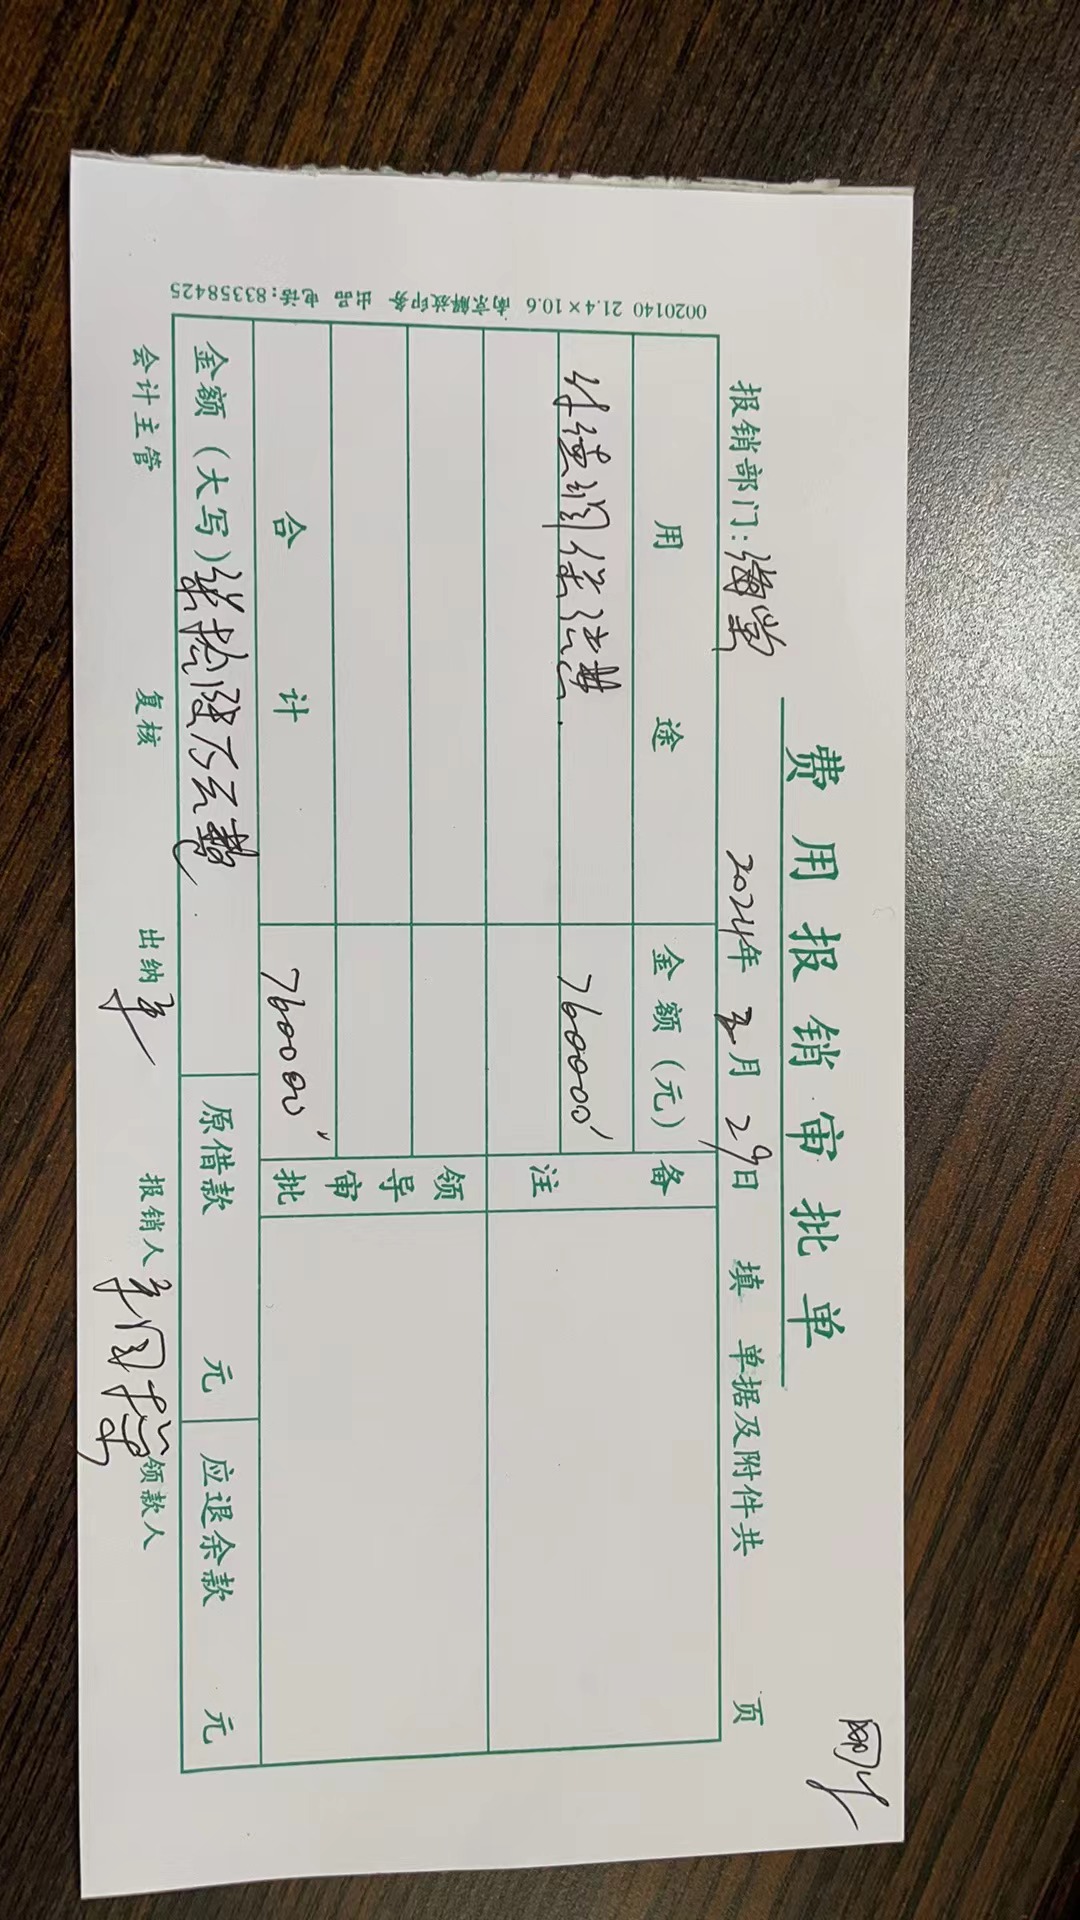 费用报销审批单
报销部门: 海棠 2024年 月 29日 填 单据及附件共 页
用 途 金 额(元) 备 注
760000
合 计 760000 领导审批
金额(大写)柒拾陆万元整 原借款 元 应退余款 元
会计主管 复核 出纳 报销人 领款人
0020140 21.4×10.6 南京解放印务 出品 电话:83358425